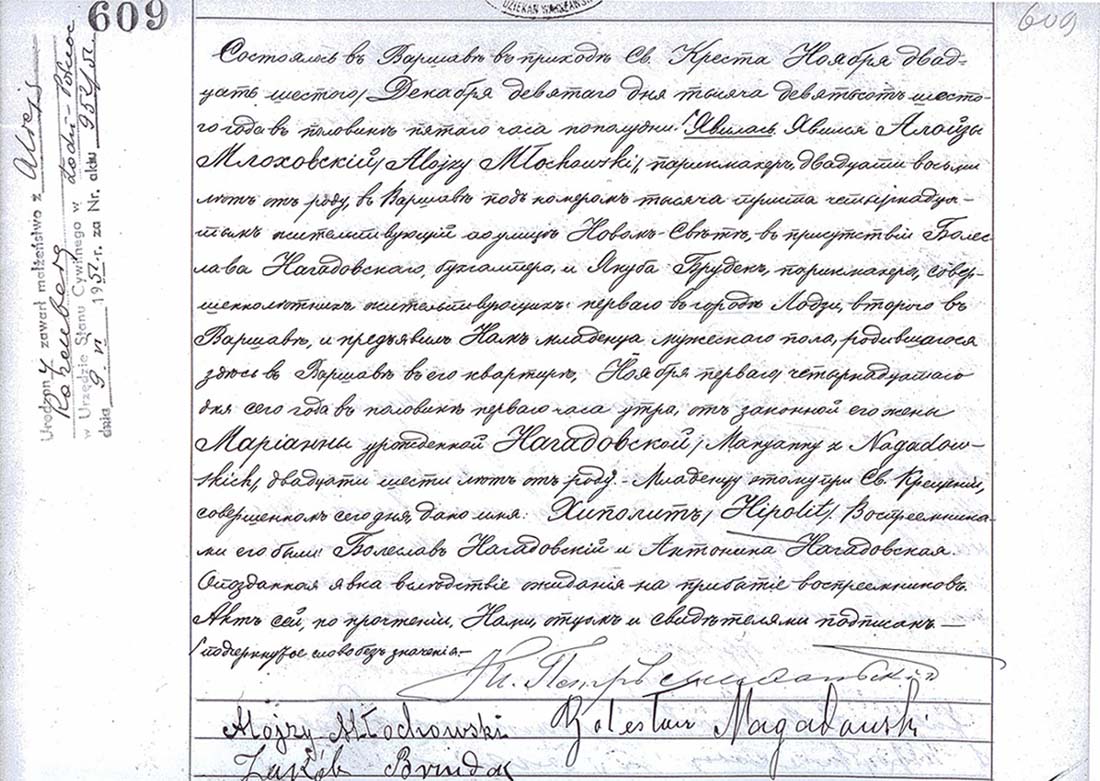 609
609
DZIEKAN WARSZAWSKI
Состоялось въ Варшавѣ въ приходѣ Св. Креста Ноября двад-
цать шестого/ Декабря девятаго дня тысяча девятьсотъ шесто-
го года въ половинѣ пятаго часа пополудни. Явилась Явился Алойзы
Млоховскій/ Alojzy Młochowski/, парикмахеръ, двадцати восьми
лѣтъ отъ роду, въ Варшавѣ подъ номеромъ тысяча триста четырнадца-
тымъ жительствующій по улицѣ Новомъ-Свѣтѣ, въ присутствіи Болес-
лава Нагадовскаго, бухгалтера, и Якуба Брудекъ, парикмахера, совер-
шеннолѣтнихъ жительствующихъ: перваго въ городѣ Лодзи, второго въ
Варшавѣ, и предъявилъ Намъ младенца мужескаго пола, родившагося
здѣсь въ Варшавѣ въ его квартирѣ, Ноября перваго/ четырнадцатаго
дня сего года въ половинѣ перваго часа утра, отъ законной его жены
Маріанны урожденной Нагадовской/ Maryanny z Nagadow-
skich/ двадцати шести лѣтъ отъ роду. - Младенцу этому при Св. Крещеніи,
совершенномъ сегодня, дано имя: Хиполитъ/ Hipolit/. Воспреемника-
ми его были: Болеславъ Нагадовскій и Антонина Нагадовская.
Опозданная явка вслѣдствіе ожиданія на прибытіе воспреемниковъ.
Актъ сей, по прочтеніи, Нами, отцомъ и свидѣтелями подписанъ —
/подчеркнутое слово безъ значенія. —
Alojzy Młochowski Bolesław Nagadowski
Jakób
Urodzony zawarł małżeństwo z Alicją
Rozenberg
w Urzędzie Stanu Cywilnego w Łodzi-Północ
dnia 9. VI 1951 r. za Nr. aktu 952/51